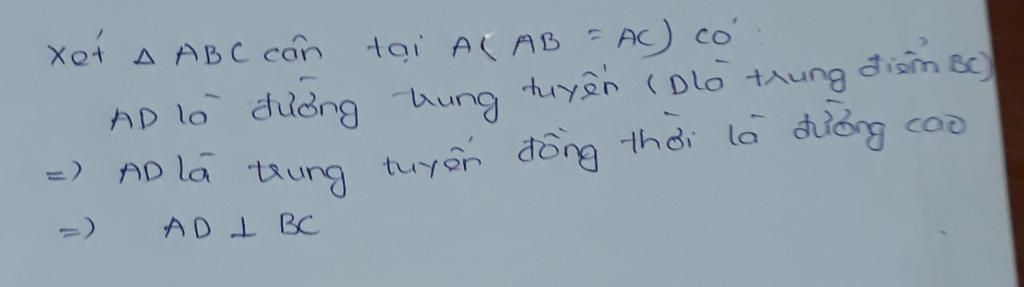 Xét Δ ABC cân tại A( AB = AC) có :
AD là đường trung tuyến (D là trung điểm BC)
=) AD là trung tuyến đồng thời là đường cao
=) AD ⊥ BC